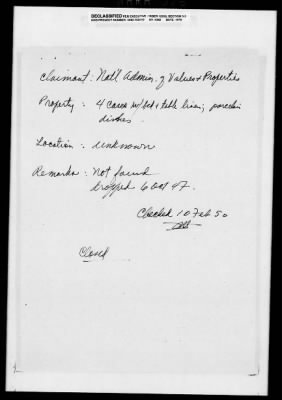 DECLASSIFIED PER EXECUTIVE ORDER 12958, SECTION 3.5
claimant : Nat'l Admin. of Values & Properties
Property : 4 Cases w/bed & table linen; porcelain
dishes.
Location : unknown
Remarks : Not found
Dropped 6 Oct 47.
Checked 10 Feb 50
Closed